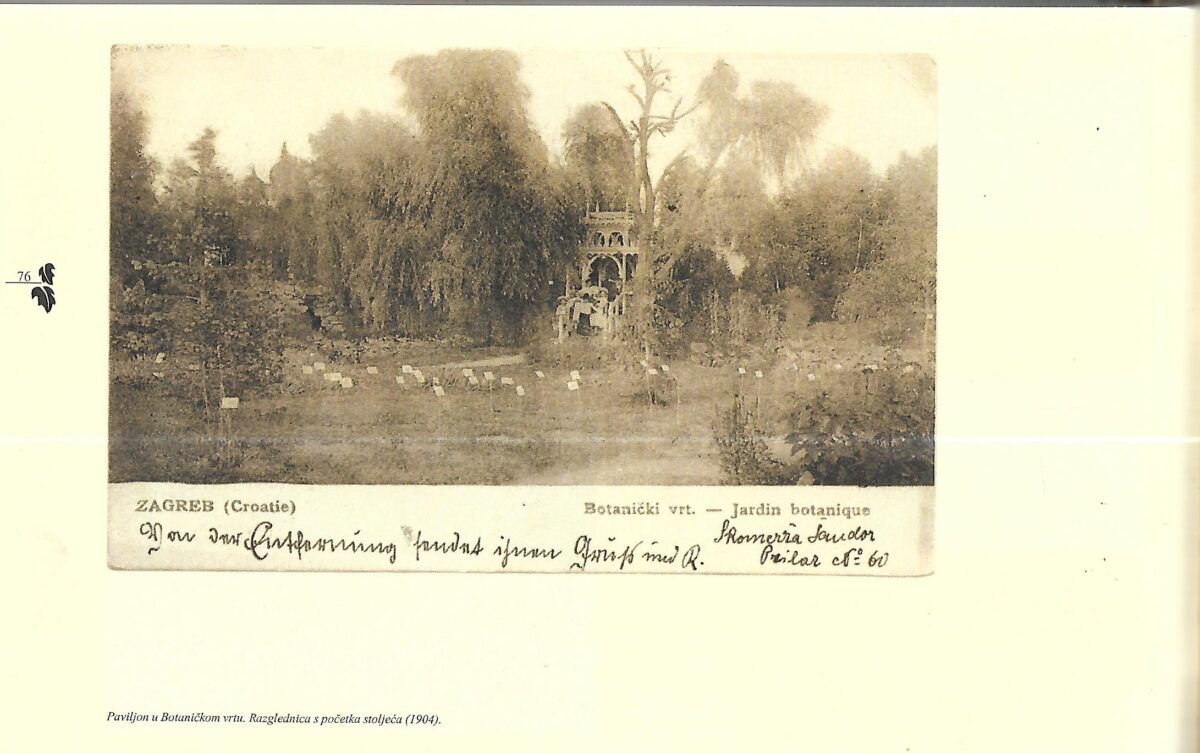 76
ZAGREB (Croatie)
Botanički vrt. — Jardin botanique
Von der Entfernung sendet ihnen Gruß und K.
Sandor
No 60
Paviljon u Botaničkom vrtu. Razglednica s početka stoljeća (1904).